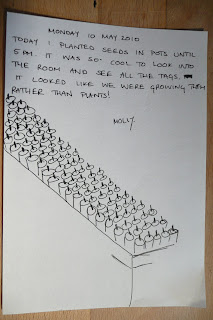 MONDAY 10 MAY 2010
TODAY I PLANTED SEEDS IN POTS UNTIL
5 PM. IT WAS SO COOL TO LOOK INTO
THE ROOM AND SEE ALL THE TAGS.
IT LOOKED LIKE WE WERE GROWING THEM
RATHER THAN PLANTS!
MOLLY